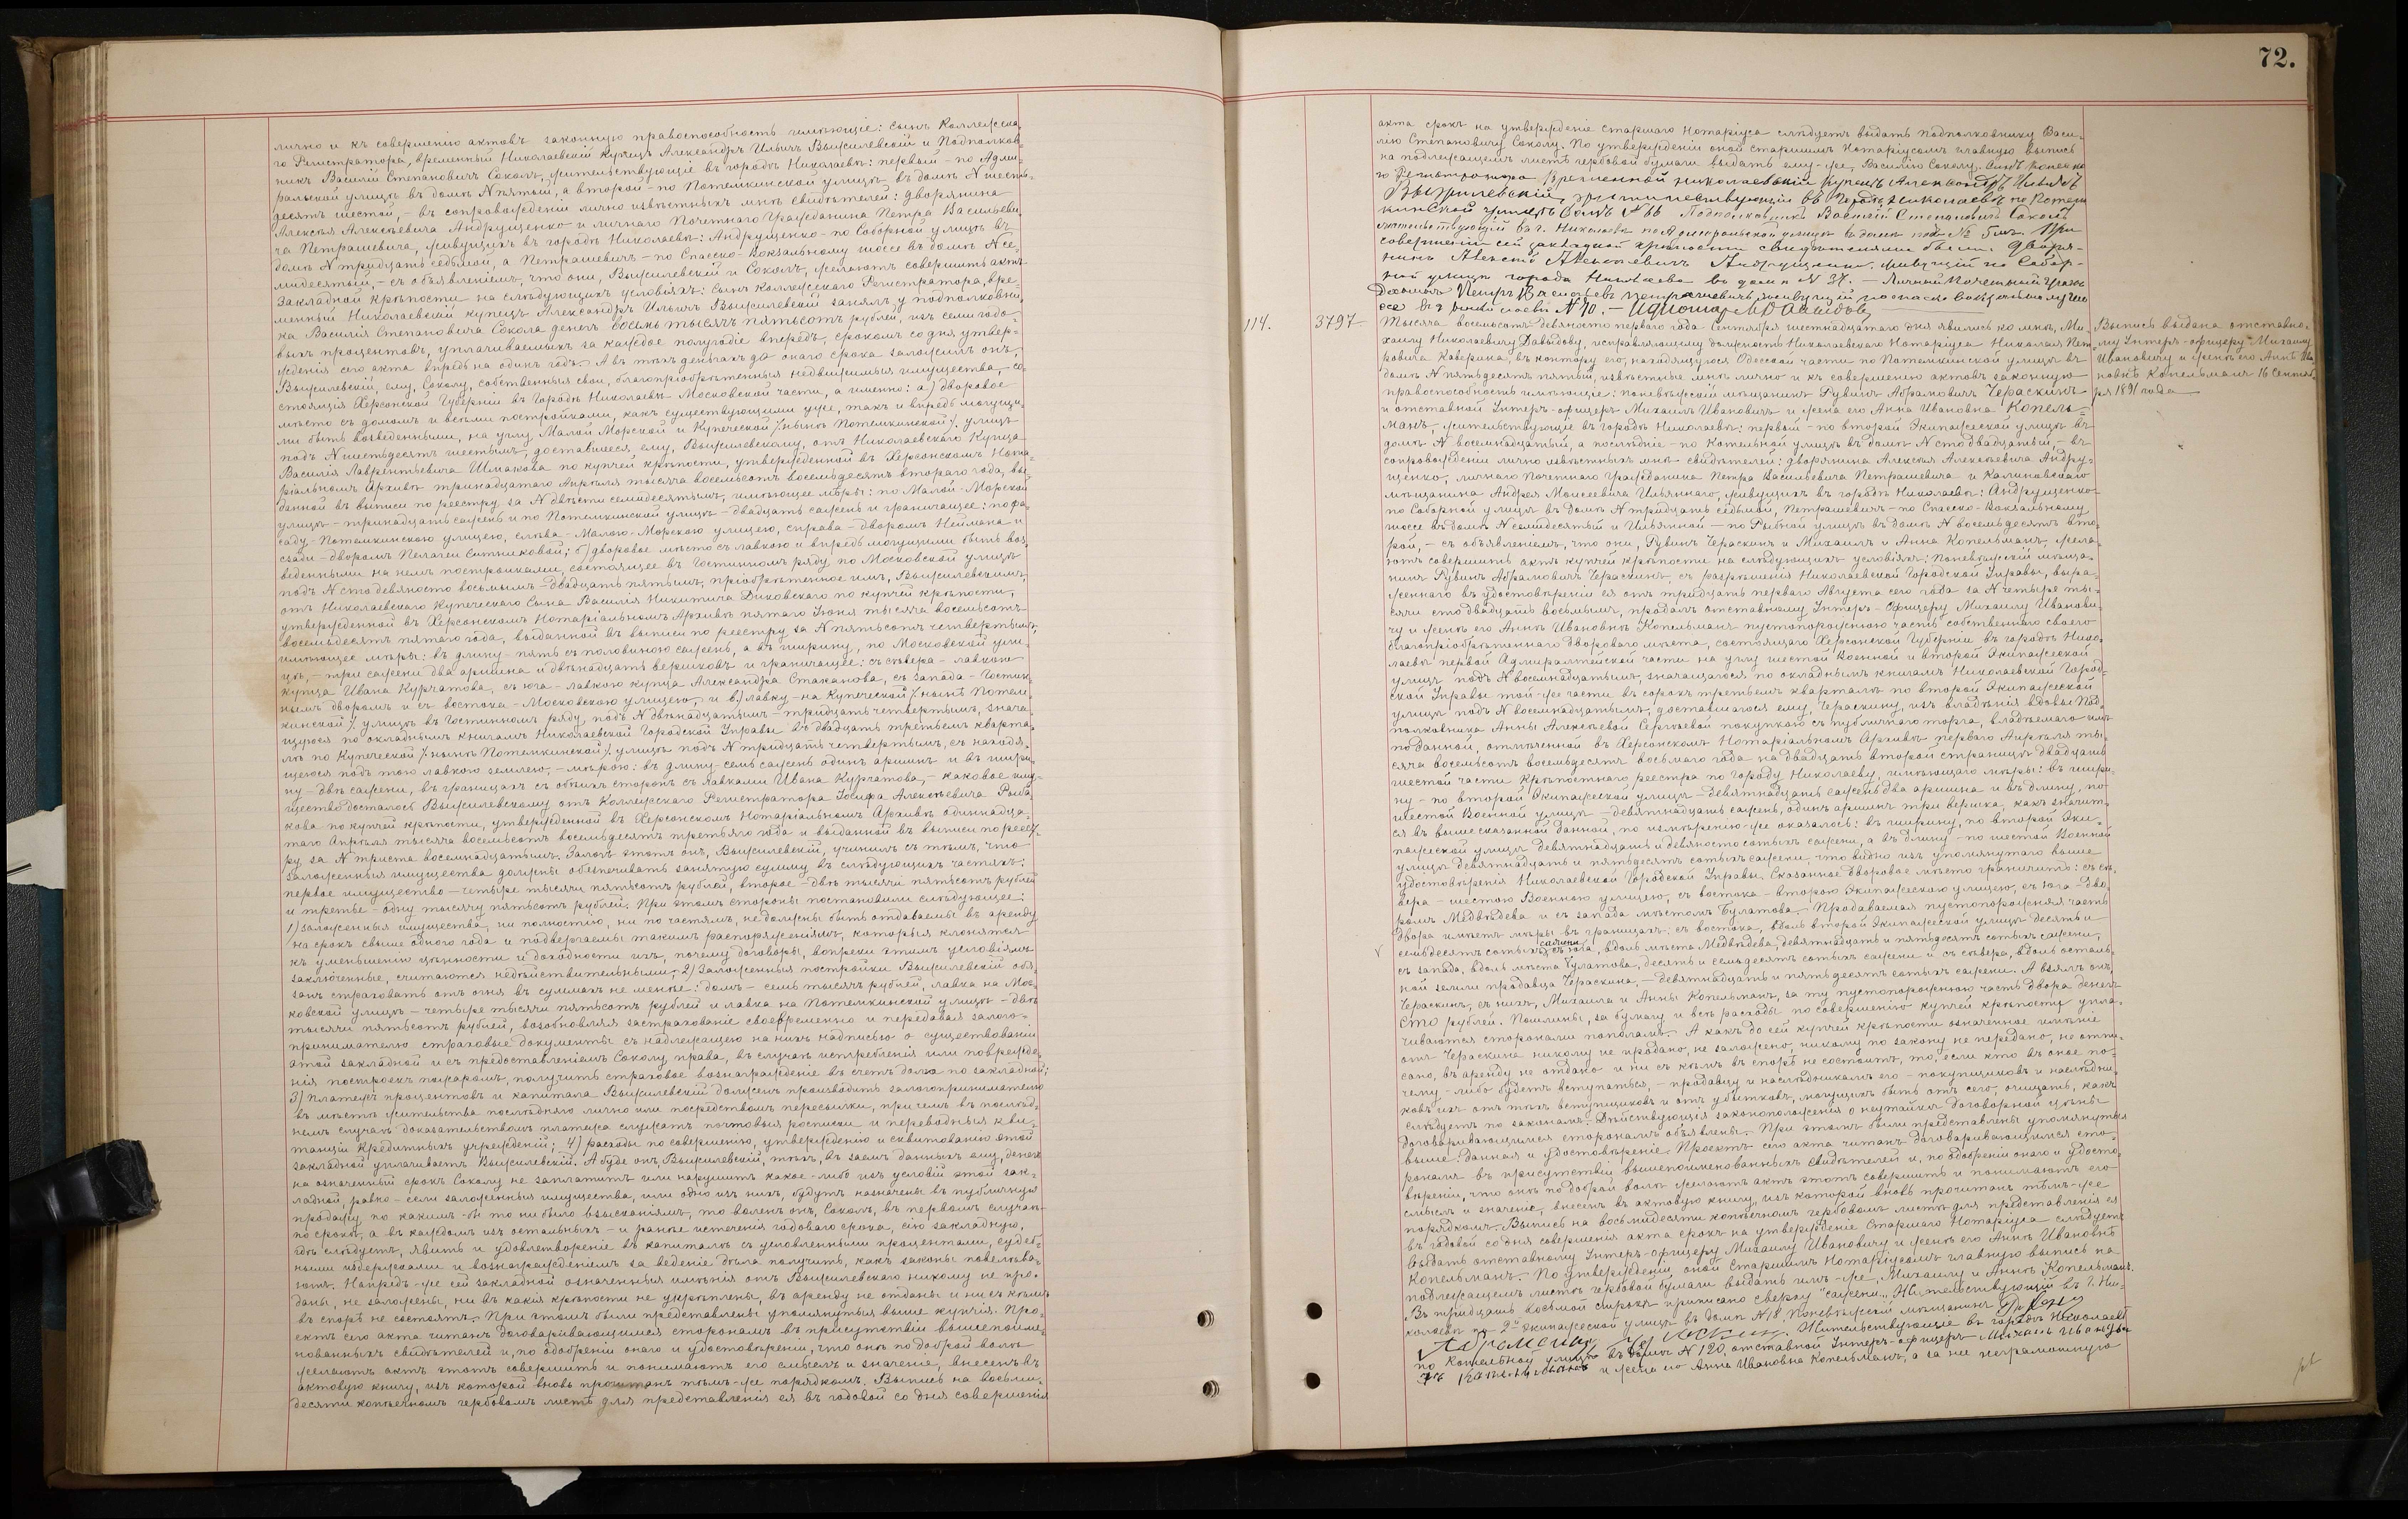 72.
лично и къ совершенію актовъ законную правоспособность имѣющіе: сынъ Коллежска-
го Регистратора, временный Николаевскій купецъ Александръ Ильичъ Выжилевскій и Подполков-
никъ Василій Степановичъ Соколъ, жительствующіе въ городѣ Николаевѣ: первый - по Адми-
ральской улицѣ въ домѣ N пятый, а второй - по Потемкинской улицѣ въ домѣ N шесть-
десятъ шестой, - въ сопровожденіи лично извѣстныхъ мнѣ свидѣтелей: дворянина
Алексѣя Алексѣевича Андрущенко и личнаго Почетнаго Гражданина Петра Васильеви-
ча Петрашевича, живущихъ въ городѣ Николаевѣ: Андрущенко - по Соборной улицѣ въ
домѣ N тридцать седьмой, а Петрашевичъ - по Спасско-Вокзальному шоссе въ домѣ N се-
мидесятый, - съ объявленіемъ, что они, Выжилевскій и Соколъ, желаютъ совершить актъ
закладной крѣпости на слѣдующихъ условіяхъ: сынъ Коллежскаго Регистратора, вре-
менный Николаевскій купецъ Александръ Ильичъ Выжилевскій занялъ у подполковни-
ка Василія Степановича Сокола денегъ восемь тысячъ пятьсотъ рублей, изъ семи годо-
выхъ процентовъ, уплачиваемыхъ за каждое полугодіе впередъ, срокомъ со дня утвер-
жденія сего акта впредь на одинъ годъ. А въ тѣхъ деньгахъ до онаго срока заложилъ онъ,
Выжилевскій ему, Соколу, собственныя свои, благопріобрѣтенныя недвижимыя имущества, со-
стоящія Херсонской Губерніи въ Городѣ Николаевѣ Московской части, а именно: а) дворовое
мѣсто съ домомъ и всѣми постройками, какъ существующими уже, такъ и впредь могущи-
ми быть возведенными, на углу Малой Морской и Купеческой /нынѣ Потемкинской/ улицъ
подъ N шестьдесятъ шестымъ, доставшееся ему, Выжилевскому, отъ Николаевскаго Купца
Василія Лаврентьевича Шмакова по купчей крѣпости, утвержденной въ Херсонскомъ Нота-
ріальномъ Архивѣ тринадцатаго Апрѣля тысяча восемьсотъ восемьдесятъ втораго года, вы-
данной въ выписи по реестру за N двѣсти семидесятымъ, имѣющее мѣры: по Малой-Морской
улицѣ - тринадцать сажень и по Потемкинской улицѣ - двадцать сажень и граничащее: по фа-
саду - Потемкинскою улицею, слѣва - Малою-Морскою улицею, справа - дворомъ Неймана и
сзади - дворомъ Пелагеи Ситниковой; б) дворовое мѣсто съ лавкою и впредь могущими быть воз-
веденными на немъ постройками, состоящее въ Гостинномъ ряду, по Московской улицѣ
подъ N сто девяносто восьмымъ - двадцать пятымъ, пріобрѣтенное имъ, Выжилевскимъ,
отъ Николаевскаго Купеческаго Сына Василія Никитича Диковскаго по купчей крѣпости,
утвержденной въ Херсонскомъ Нотаріальномъ Архивѣ пятаго Іюня тысяча восемьсотъ
восемьдесятъ пятаго года, выданной въ выписи по реестру за N пятьсотъ четвертымъ,
имѣющее мѣры: въ длину - пять съ половиною сажень, а въ ширину, по Московской ули-
цѣ, - три сажени два аршина и двѣнадцать вершковъ и граничащее: съ сѣвера - лавкою
купца Ивана Курчатова, съ юга - лавкою купца Александра Стаканова, съ запада - Гостин-
нымъ дворомъ и съ востока - Московскою улицею, и в) лавку - на Купеческой /нынѣ Потем-
кинской/ улицѣ въ Гостинномъ ряду, подъ N двѣнадцатымъ - тридцать четвертымъ, знача-
щуюся по окладнымъ книгамъ Николаевской Городской Управы въ двадцать третьемъ кварта-
лѣ по Купеческой /нынѣ Потемкинской/ улицѣ подъ N тридцать четвертымъ, съ находя-
щеюся подъ тою лавкою землею, - мѣрою: въ длину - семь сажень одинъ аршинъ и въ шири-
ну - двѣ сажени, въ границахъ съ обѣихъ сторонъ съ лавками Ивана Курчатова, - каковое иму-
щество досталось Выжилевскому отъ Коллежскаго Регистратора Іосифа Алексѣевича Рыба-
кова по купчей крѣпости, утвержденной въ Херсонскомъ Нотаріальномъ Архивѣ одиннадца-
таго Апрѣля тысяча восемьсотъ восемьдесятъ третьяго года и выданной въ выписи по реест-
ру за N триста восемнадцатымъ. Залогъ этотъ онъ, Выжилевскій, учинилъ съ тѣмъ, что
заложенныя имущества должны обезпечивать занятую сумму въ слѣдующихъ частяхъ:
первое имущество - четыре тысячи пятьсотъ рублей, второе - двѣ тысячи пятьсотъ рублей
и третье - одну тысячу пятьсотъ рублей. При этомъ стороны постановили слѣдующее:
1) заложенныя имущества, ни полностію, ни по частямъ, не должны быть отдаваемы въ аренду
на срокъ свыше одного года и подвергаемы такимъ распоряженіямъ, которыя клонятся
къ уменьшенію цѣнности и доходности ихъ, почему договоры, вопреки этимъ условіямъ
заключенные, считаются недѣйствительными; 2) Заложенныя постройки Выжилевскій обя-
занъ страховать отъ огня въ суммахъ не менѣе: домъ - семь тысячъ рублей, лавка на Мос-
ковской улицѣ - четыре тысячи пятьсотъ рублей и лавка на Потемкинской улицѣ - двѣ
тысячи пятьсотъ рублей, возобновляя застрахованіе своевременно и передавая залого-
принимателю страховые документы съ надлежащею на нихъ надписью о существованіи
этой закладной и съ предоставленіемъ Соколу права, въ случаѣ истребленія или поврежде-
нія построекъ пожаромъ, получить страховое вознагражденіе въ счетъ долга по закладной;
3) Платежъ процентовъ и капитала Выжилевскій долженъ производить залогопринимателю
въ мѣстѣ жительства послѣдняго лично или посредствомъ пересылки, при чемъ въ послѣд-
немъ случаѣ доказательствомъ платежа служатъ почтовыя росписки и переводныя кви-
танціи кредитныхъ учрежденій; 4) расходы по совершенію, утвержденію и сквитованію этой
закладной уплачиваетъ Выжилевскій. А буде онъ, Выжилевскій, тѣхъ, въ заемъ данныхъ ему, денегъ
на означенный срокъ Соколу не заплатитъ или нарушитъ какое-либо изъ условій этой зак-
ладной, равно - если заложенныя имущества, или одно изъ нихъ, будутъ назначены въ публичную
продажу по какимъ-бы то ни было взысканіямъ, то воленъ онъ, Соколъ, въ первомъ случаѣ
по срокѣ, а въ каждомъ изъ остальныхъ - и ранѣе истеченія годоваго срока, сію закладную,
гдѣ слѣдуетъ, явить и удовлетвореніе въ капиталѣ съ условленными процентами, судеб-
ными издержками и вознагражденіемъ за веденіе дѣла получить, какъ законы повелѣва-
ютъ. Напредь-же сей закладной означенныя имѣнія отъ Выжилевскаго никому не про-
даны, не заложены, ни въ какія крѣпости не укрѣплены, въ аренду не отданы и ни съ кѣмъ
въ спорѣ не состоятъ. При этомъ были представлены упомянутыя выше купчія. Про-
ектъ сего акта читанъ договаривающимся сторонамъ въ присутствіи вышепоиме-
нованныхъ свидѣтелей и, по одобреніи онаго и удостовѣреніи, что онѣ по доброй волѣ
желаютъ актъ этотъ совершить и понимаютъ его смыслъ и значеніе, внесенъ въ
актовую книгу, изъ которой вновь прочитанъ тѣмъ-же порядкомъ. Выпись на восьми-
десяти копѣечномъ гербовомъ листѣ для представленія ея въ годовой со дня совершенія
акта срокъ на утвержденіе старшаго Нотаріуса слѣдуетъ выдать подполковнику Васи-
лію Степановичу Соколу. По утвержденіи оной старшимъ Нотаріусомъ главную выпись
на подлежащемъ листѣ гербовой бумаги выдать ему-же, Василію Соколу. Сынъ Коллежска-
го Регистратора Временной николаевскій купецъ Александръ Ильичъ
Выжилевскій, жительствующій въ городѣ Николаевѣ по Потем
кинской улицѣ домъ №66 Подполковникъ Василій Степановичъ Соколъ
жительствующій въ г. Николаевѣ по Адмиральской улицѣ въ домѣ подъ № 5мъ. При
совершеніи сей закладной крѣпости свидѣтелями были: Дворя-
нинъ Алексѣй Алексѣевичъ Андрущенко, живущій по Собор-
ной улицѣ города Николаева въ домѣ N 37. - Личный Почетный Граж
данинъ Петръ Васильевъ Петрашевичъ, живущій по Спасско Вокзальному шо
ссе въ домѣ N 70. - И. д. Нотаріуса М. Давыдовъ
114.
3797
Тысяча восемьсотъ девяносто перваго года Сентября шестнадцатаго дня явились ко мнѣ, Ми-
хаилу Николаевичу Давыдову, исправляющему должность Николаевскаго Нотаріуса Николая Пет-
ровича Каверина, въ контору его, находящуюся Одесской части по Потемкинской улицѣ въ
домѣ N пятьдесятъ пятый, извѣстные мнѣ лично и къ совершенію актовъ законную
правоспособность имѣющіе: поневѣжскій мѣщанинъ Рувинъ Абрамовичъ Чераскинъ
и отставной Унтеръ-офицеръ Михаилъ Ивановичъ и жена его Анна Ивановна Копель-
манъ, жительствующіе въ городѣ Николаевѣ: первый - по второй Экипажеской улицѣ въ
домѣ N восемнадцатый, а послѣдніе - по Котельной улицѣ въ домѣ N сто двадцатый, - въ
сопровожденіи лично извѣстныхъ мнѣ свидѣтелей: дворянина Алексѣя Алексѣевича Андру-
щенко, личнаго Почетнаго Гражданина Петра Васильевича Петрашевича и Калиновскаго
мѣщанина Андрея Моисеевича Ильяннаго, живущихъ въ городѣ Николаевѣ: Андрущенко -
по Соборной улицѣ въ домѣ N тридцать седьмой, Петрашевичъ - по Спасско-Вокзальному
шоссе въ домѣ N семидесятый и Ильянной - по Рыбной улицѣ въ домѣ N восемьдесятъ вто-
рой, - съ объявленіемъ, что они, Рувинъ Чераскинъ и Михаилъ и Анна Копельманъ, жела-
ютъ совершить актъ купчей крѣпости на слѣдующихъ условіяхъ: Поневѣжскій мѣща-
нинъ Рувинъ Абрамовичъ Чераскинъ, съ разрѣшенія Николаевской Городской Управы, выра-
женнаго въ удостовѣреніи ея отъ тридцать перваго Августа сего года за N четыре ты-
сячи сто двадцать восьмымъ, продалъ отставному Унтеръ-Офицеру Михаилу Иванови-
чу и женѣ его Аннѣ Ивановнѣ Копельманъ пустопорожнюю часть собственнаго своего
благопріобрѣтеннаго дворового мѣста, состоящаго Херсонской Губерніи въ городѣ Нико-
лаевѣ первой Адмиралтейской части на углу шестой Военной и второй Экипажеской
улицъ подъ N восемнадцатымъ, значащагося по окладнымъ книгамъ Николаевской Город-
ской Управы той-же части въ сорокъ третьемъ кварталѣ по второй Экипажеской
улицѣ подъ N восемнадцатымъ, доставшагося ему, Чераскину, изъ владѣнія вдовы Под-
полковника Анны Алексѣевой Сергѣевой покупкою съ публичнаго торга, владѣемаго имъ
по данной, отмѣченной въ Херсонскомъ Нотаріальномъ Архивѣ перваго Апрѣля ты-
сяча восемьсотъ восемьдесятъ восьмаго года на двадцать второй страницѣ двадцать
шестой части крѣпостнаго реестра по городу Николаеву, имѣющаго мѣры: въ шири-
ну - по второй Экипажеской улицѣ - девятнадцать сажень два аршина и въ длину, по
шестой Военной улицѣ - девятнадцать сажень, одинъ аршинъ три вершка, какъ значит-
ся въ вышесказанной данной, по измѣренію-же оказалось: въ ширину, по второй Эки-
пажеской улицѣ девятнадцать и девяносто сотыхъ сажени, а въ длину - по шестой Военной
улицѣ девятнадцать и пятьдесятъ сотыхъ сажени, что видно изъ упомянутаго выше
удостовѣренія Николаевской Городской Управы. Сказанное дворовое мѣсто граничитъ: съ сѣ-
вера - шестою Военною улицею, съ востока - второю Экипажескою улицею, съ юга - дво-
ромъ Медвѣдева и съ запада мѣстомъ Булатова. Продаваемая пустопорожняя часть
двора имѣетъ мѣры въ границахъ: съ востока, вдоль второй Экипажеской улицы десять и
сажени
семьдесятъ сотыхъ, съ юга, вдоль мѣста Медвѣдева, девятнадцать и пятьдесятъ сотыхъ сажени,
съ запада, вдоль мѣста Булатова, десять и семьдесятъ сотыхъ сажени и съ сѣвера, вдоль осталь-
ной земли продавца Чераскина, - девятнадцать и пятьдесятъ сотыхъ сажени. А взялъ онъ,
Чераскинъ, съ нихъ, Михаила и Анны Копельманъ, за ту пустопорожнюю часть двора денегъ
сто рублей. Пошлины, за бумагу и всѣ расходы по совершенію купчей крѣпости упла-
чиваются сторонами пополамъ. А какъ до сей купчей крѣпости означенное имѣніе
отъ Чераскина никому не продано, не заложено, никому по закону не передано, не отпи-
сано, въ аренду не отдано и ни съ кѣмъ въ спорѣ не состоитъ, то, если кто въ оное по-
чему-либо будетъ вступаться, - продавцу и наслѣдникамъ его - покупщиковъ и наслѣдни-
ковъ ихъ отъ тѣхъ вступщиковъ и отъ убытковъ, могущихъ быть отъ сего, очищать, какъ
слѣдуетъ по законамъ. Дѣйствующія законоположенія о неутайкѣ договорной цѣны
договаривающимся сторонамъ объявлены. При этомъ были представлены упомянутыя
выше: данная и удостовѣреніе. Проектъ сего акта читанъ договаривающимся сто-
ронамъ въ присутствіи вышепоименованныхъ свидѣтелей и, по одобреніи онаго и удосто-
вѣреніи, что онѣ по доброй волѣ желаютъ актъ этотъ совершить и понимаютъ его
смыслъ и значеніе, внесенъ въ актовую книгу, изъ которой вновь прочитанъ тѣмъ-же
порядкомъ. Выпись на восьмидесяти копѣечномъ гербовомъ листѣ для представленія ея
въ годовой со дня совершенія акта срокъ на утвержденіе Старшаго Нотаріуса слѣдуетъ
выдать отставному Унтеръ-офицеру Михаилу Ивановичу и женѣ его Аннѣ Ивановнѣ
Копельманъ. По утвержденіи оной Старшимъ Нотаріусомъ главную выпись на
подлежащемъ листѣ гербовой бумаги выдать имъ-же, Михаилу и Аннѣ Копельманъ.
Въ тридцать восьмой строкѣ приписано сверху "сажени". Жительствующій въ г. Ни-
колаевѣ по 2й Экипажеской улицѣ въ домѣ N 18, Поневѣжскій мѣщанинъ Рувинъ
Абрамовичъ Чераскинъ. Жительствующіе въ городѣ Николаевѣ
по Котельной улицѣ въ домѣ N 120, отставной Унтеръ-офицеръ Михаилъ Ивановъ
Копельманъ и жена его Анна Ивановна Копельманъ, а за нее неграмотную
Выпись выдана отставно-
му Унтеръ-офицеру Михаилу
Ивановичу и женѣ его Аннѣ Ива
новнѣ Копельманъ 16 Сентяб-
ря 1891 года